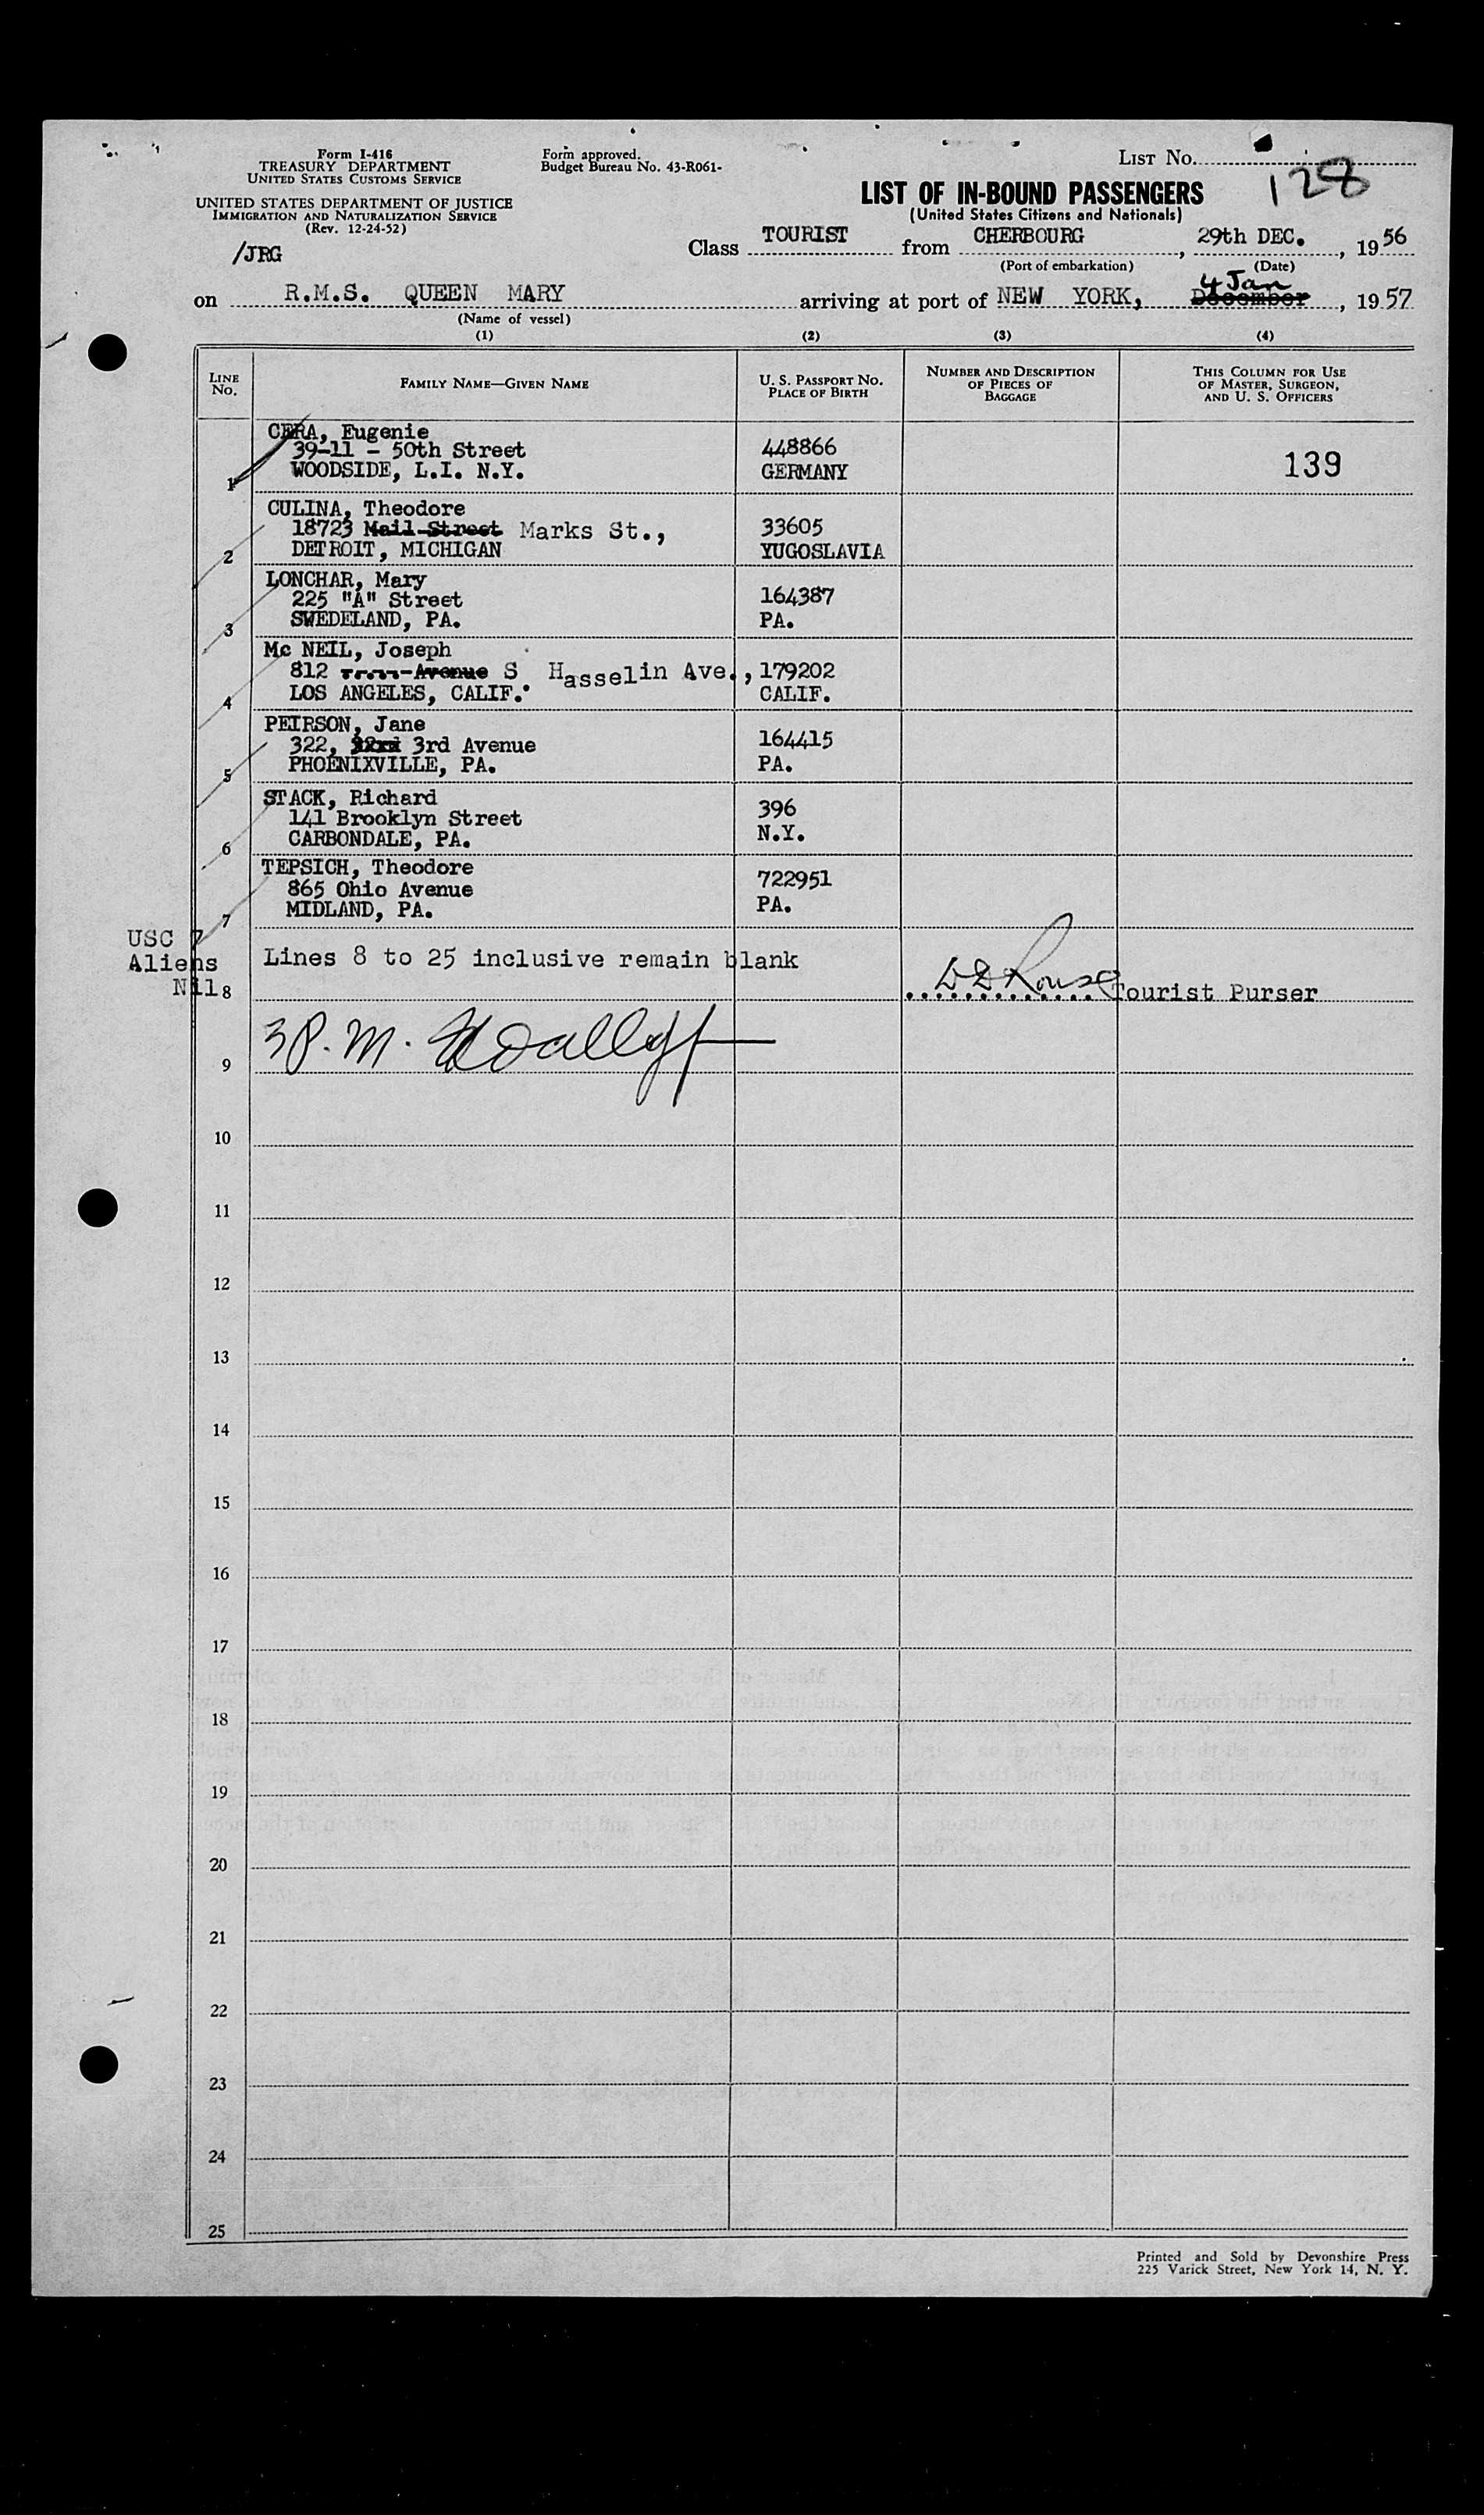 Form I-416
TREASURY DEPARTMENT
UNITED STATES CUSTOMS SERVICE
UNITED STATES DEPARTMENT OF JUSTICE
IMMIGRATION AND NATURALIZATION SERVICE
(Rev. 12-24-52)
/JRG
Form approved.
Budget Bureau No. 43-R061-
LIST NO.
128
LIST OF IN-BOUND PASSENGERS
(United States Citizens and Nationals)
Class TOURIST from CHERBOURG, 29th DEC., 1956
(Port of embarkation) (Date)
on R.M.S. QUEEN MARY arriving at port of NEW YORK, 4 Jan December, 1957
(Name of vessel)
(1) (2) (3) (4)
LINE NO.
FAMILY NAME—GIVEN NAME
U. S. PASSPORT NO.
PLACE OF BIRTH
NUMBER AND DESCRIPTION
OF PIECES OF
BAGGAGE
THIS COLUMN FOR USE
OF MASTER, SURGEON,
AND U. S. OFFICERS
CERA, Eugenie
39-11 - 50th Street 448866
1 WOODSIDE, L.I. N.Y. GERMANY 139
CULINA, Theodore
18723 Mail Street Marks St., 33605
2 DETROIT, MICHIGAN YUGOSLAVIA
LONCHAR, Mary
225 "A" Street 164387
3 SWEDELAND, PA. PA.
Mc NEIL, Joseph
812 Avenue S Hasselin Ave., 179202
4 LOS ANGELES, CALIF. CALIF.
PEIRSON, Jane
322, 3rd Avenue 164415
5 PHOENIXVILLE, PA. PA.
STACK, Richard
141 Brooklyn Street 396
6 CARBONDALE, PA. N.Y.
TEPSICH, Theodore
865 Ohio Avenue 722951
7 MIDLAND, PA. PA.
USC 7
Aliens
Nil
8 Lines 8 to 25 inclusive remain blank
Tourist Purser
9 3 P.M.
10
11
12
13
14
15
16
17
18
19
20
21
22
23
24
25
Printed and Sold by Devonshire Press
225 Varick Street, New York 14, N. Y.